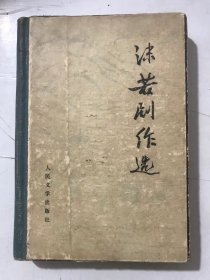 沫若剧作选
人民文学出版社